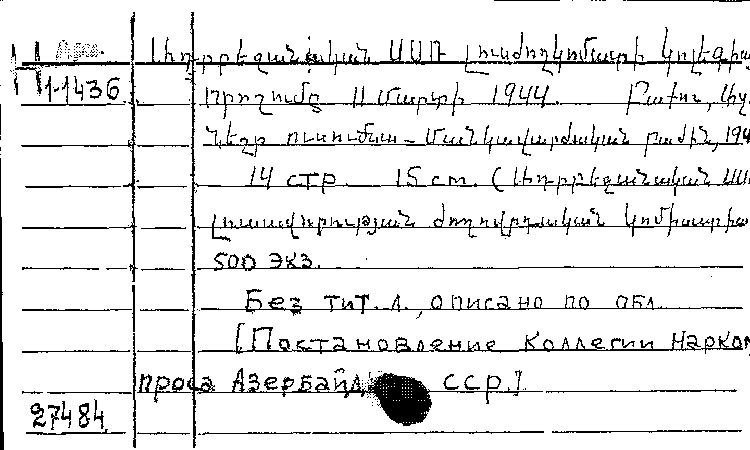 Арм.
Ադրբեջանական ՍՍՌ Լուսժողկոմատի կոլեգիա
П 1-1436
Որոշումը 11 մարտի 1944. Բաքու,
Նեղր ուսումնա-մանկավարժական բաժին, 194
14 стр 15 cm. (Ադրբեջանական ՍՍ
Լուսավորության ժողովրդական կոմիսարիա
500 экз.
Без тит. л., описано по обл.
[Постановление Коллегии Нарком
проса Азербайд ССР.]
27484